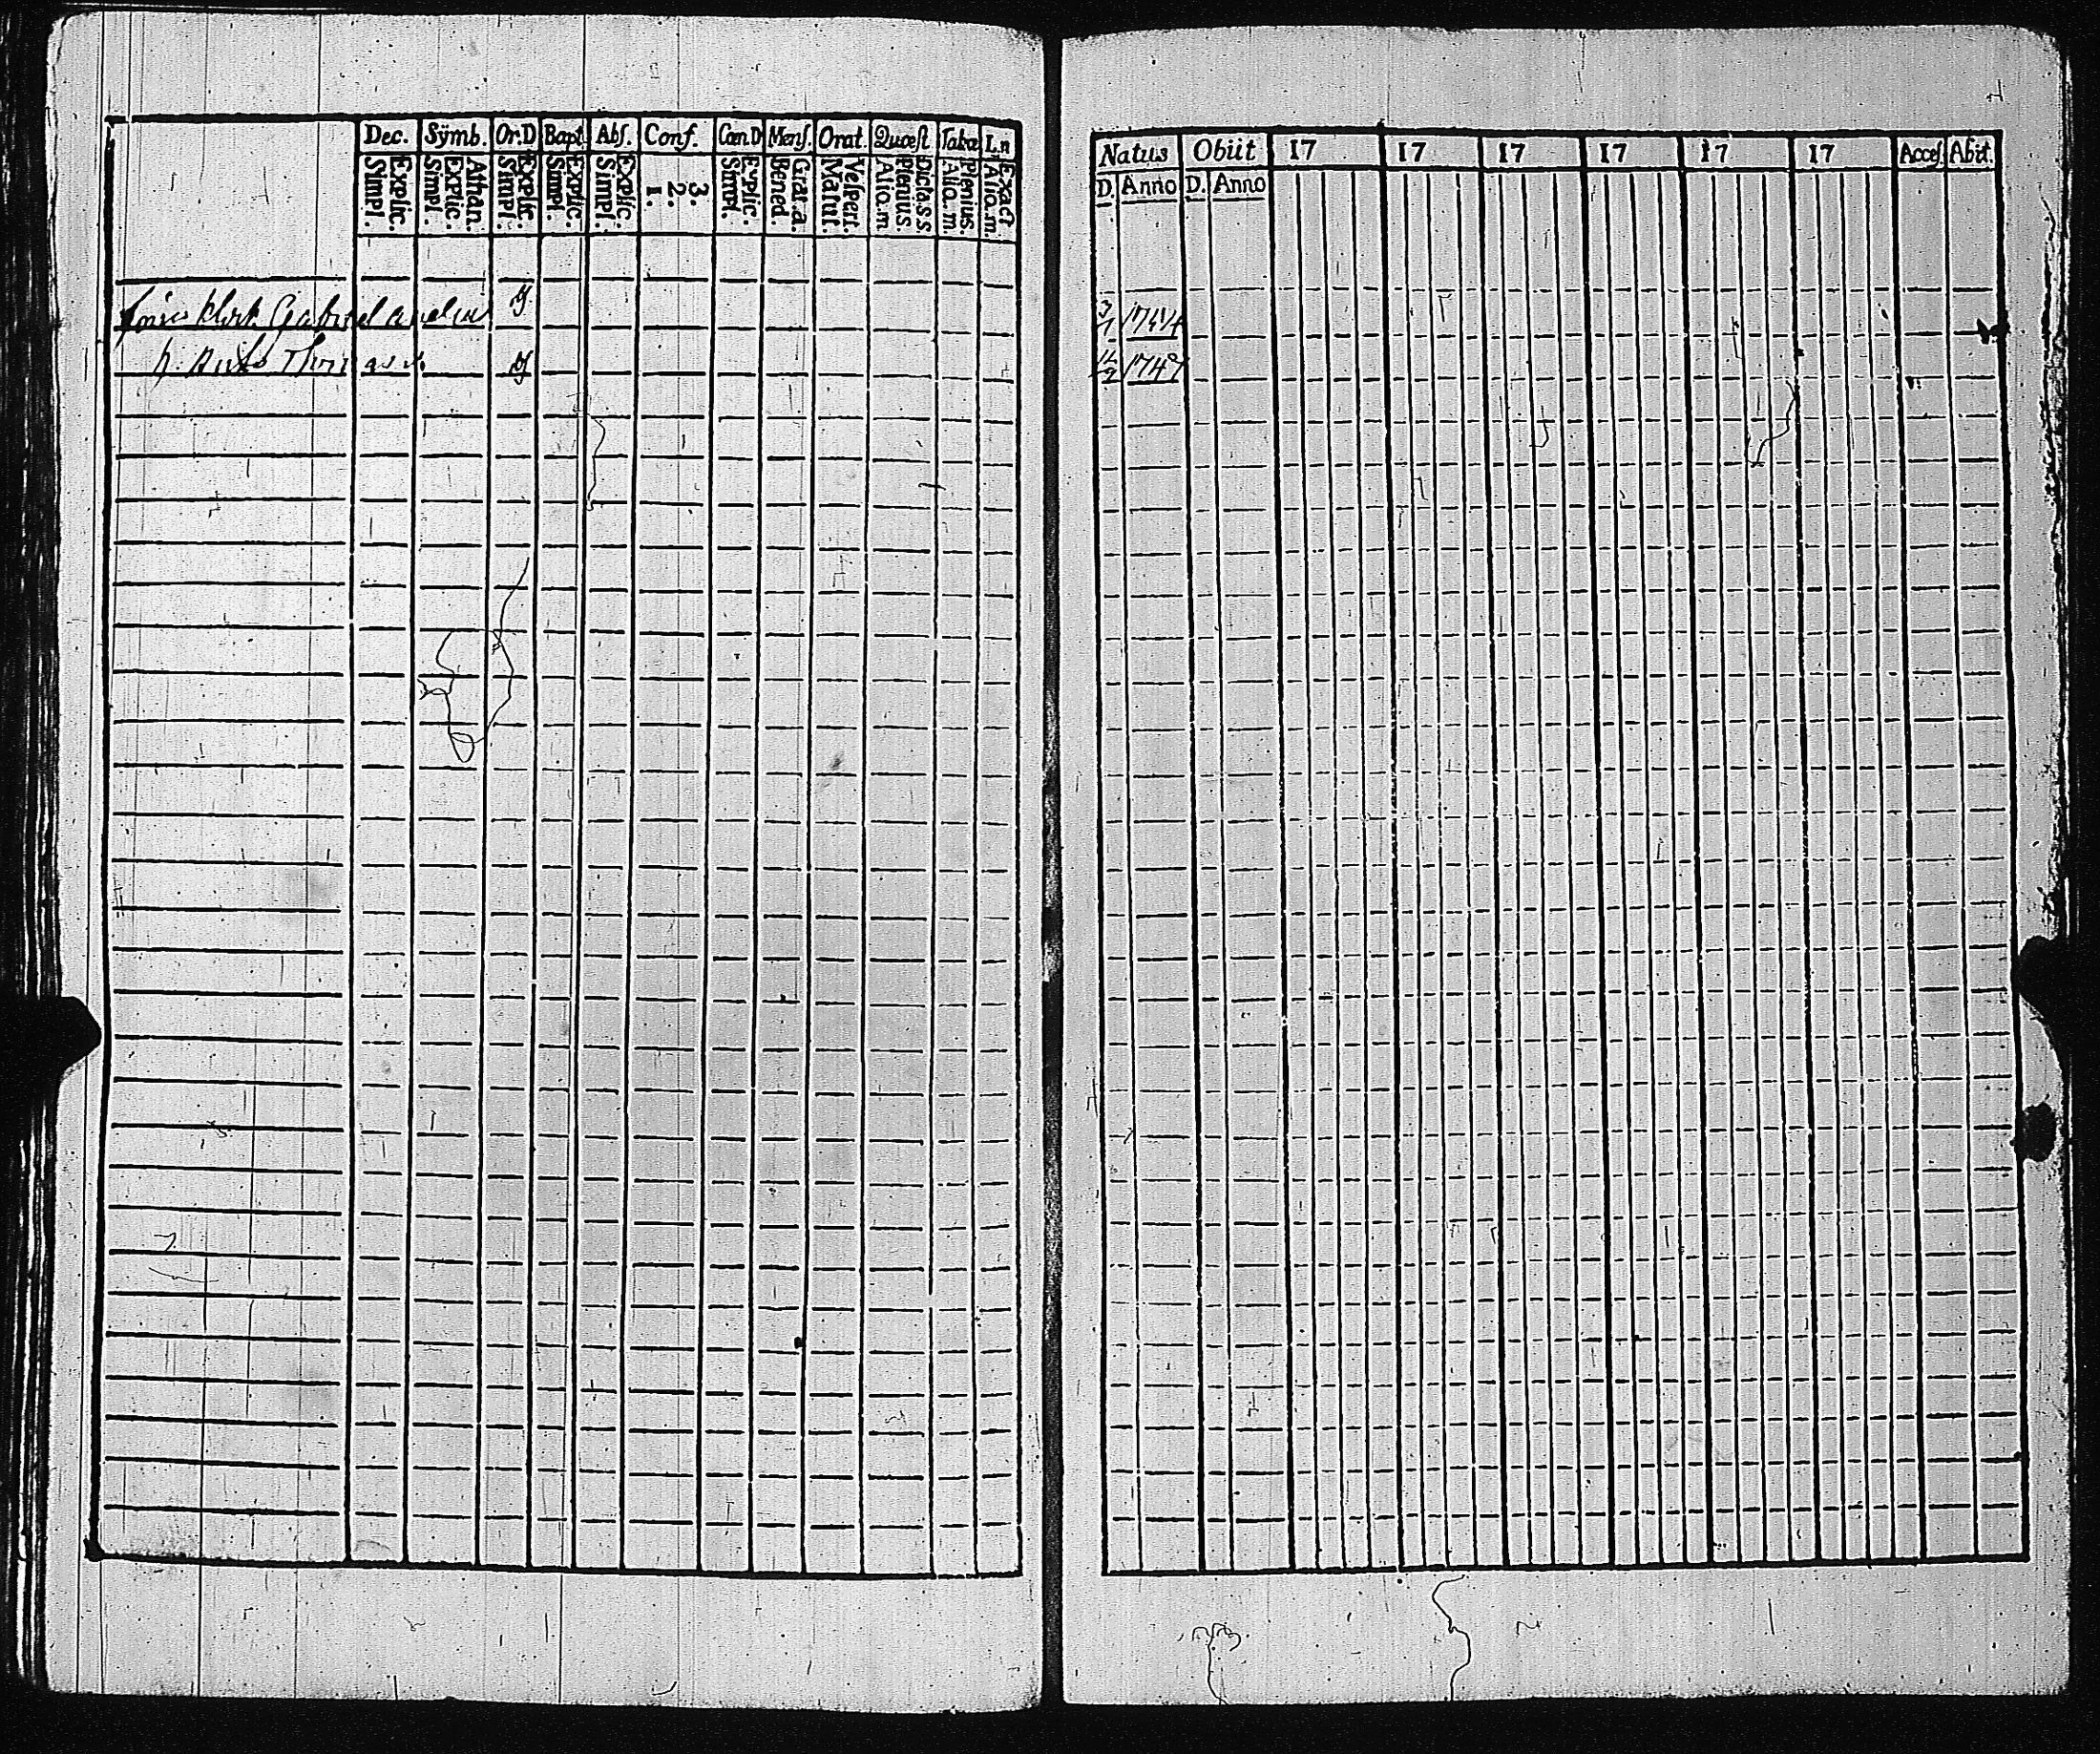 Dec. Symb. Or.D Bapt Abs. Conf. Cœn.D Mens. Orat. Quœst Tabœ L.n
Explic. Simpl. Athan. Explic. Simpl. Explic. Simpl. Explic. Simpl. Explic. Simpl. 3. 2. 1. Explic. Simpl. Grat.a. Bened. Vespert. Matut. Dicta.s.s. Plenius Alio.m Plenius. Alio.m. Exact Alio.m.
Gabriel
h.
Natus Obiit 17 17 17 17 17 17 Acces. Abit.
D. Anno D. Anno
1744
1749